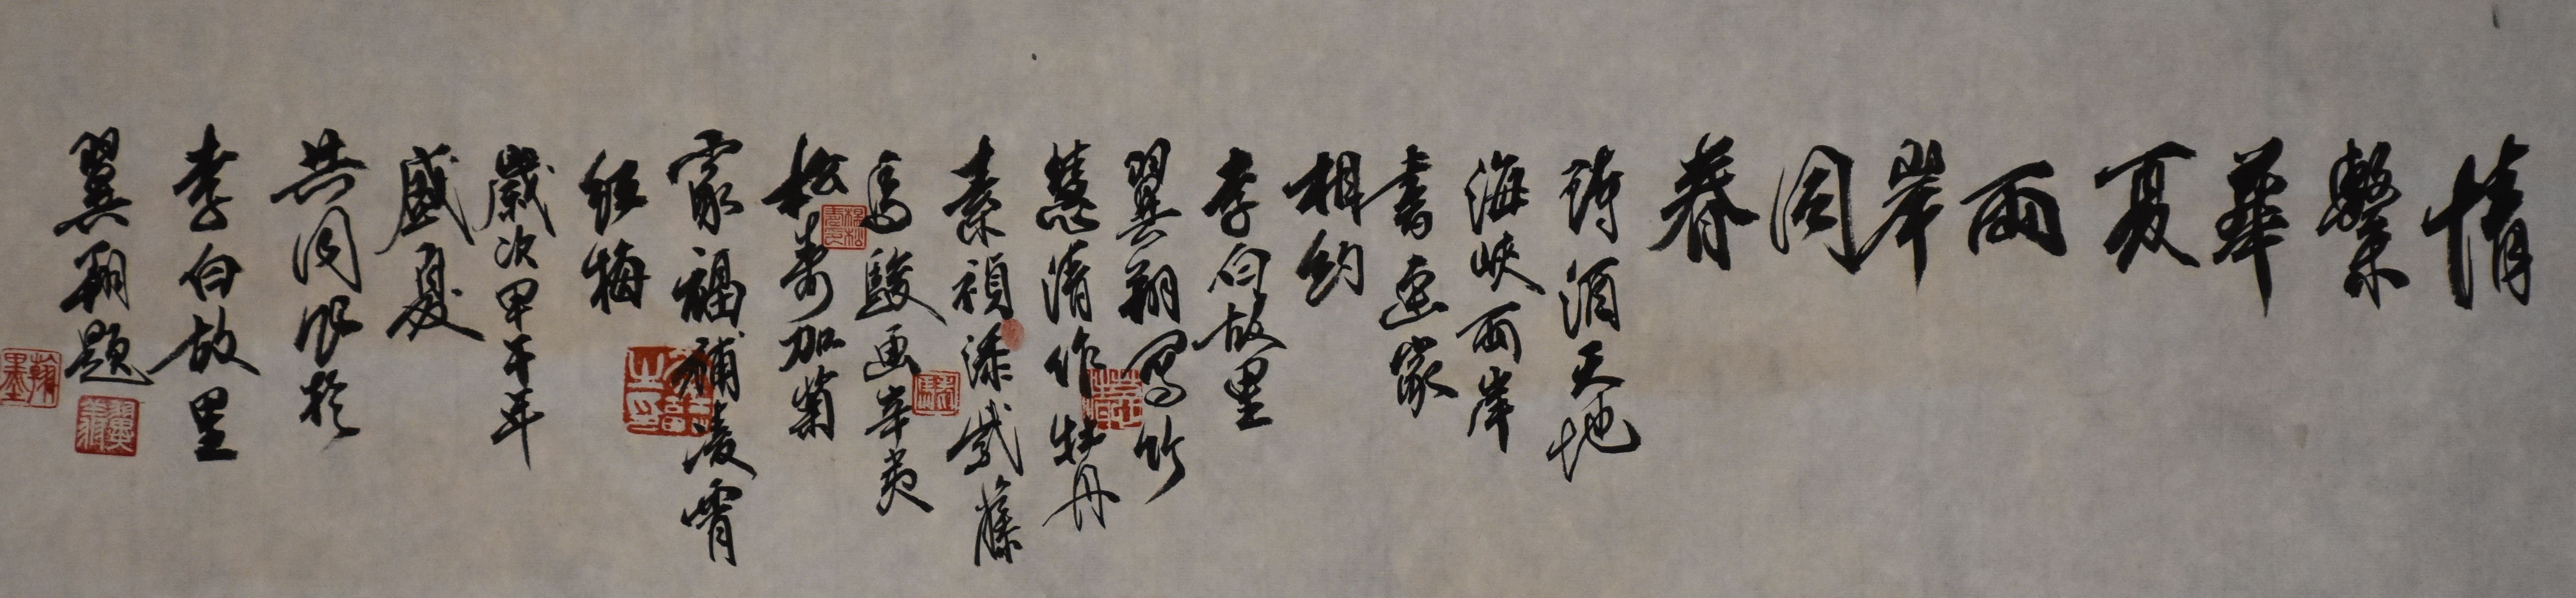 情繫華夏兩岸同春
詩酒天地
海峽兩岸
書画家
相約
李白故里
翼翔寫竹
慧清作牡丹
素禎添紫藤
馬駿画辛夷
松壽加菊
家福補凌霄
紅梅
歲次甲午年
盛夏
共同作於
李白故里
翼翔題